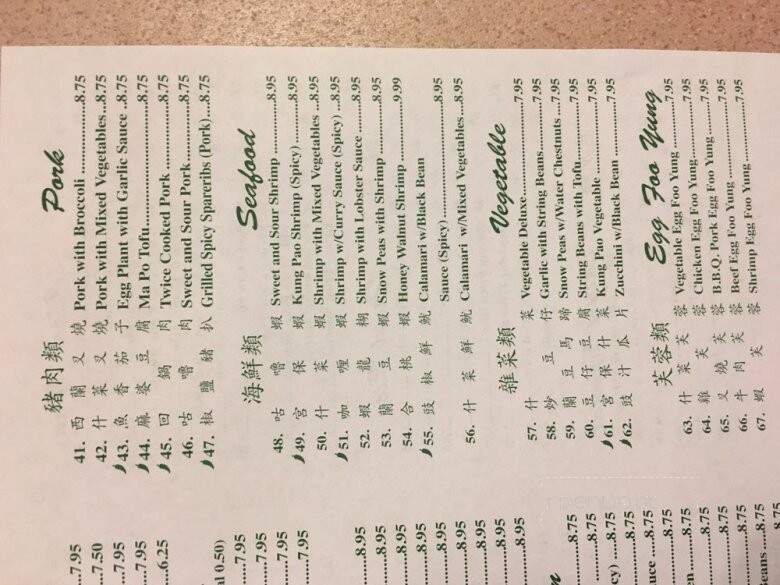 豬肉類 Pork
41. 西蘭叉燒 Pork with Broccoli ..........8.75
42. 什菜叉燒 Pork with Mixed Vegetables..8.75
43. 魚香茄子 Egg Plant with Garlic Sauce ..8.75
44. 麻婆豆腐 Ma Po Tofu..........8.75
45. 回鍋肉 Twice Cooked Pork ..........8.75
46. 咕嚕肉 Sweet and Sour Pork ..........8.75
47. 椒鹽豬扒 Grilled Spicy Spareribs (Pork)....8.75
海鮮類 Seafood
48. 咕嚕蝦 Sweet and Sour Shrimp ..........8.95
49. 宮保蝦 Kung Pao Shrimp (Spicy) ..........8.95
50. 什菜蝦 Shrimp with Mixed Vegetables ..8.95
51. 咖喱蝦 Shrimp w/Curry Sauce (Spicy) ..8.95
52. 蝦龍糊 Shrimp with Lobster Sauce ..........8.95
53. 蘭豆蝦 Snow Peas with Shrimp ..........8.95
54. 合桃蝦 Honey Walnut Shrimp ..........9.99
55. 豉椒鮮魷 Calamari w/Black Bean
Sauce (Spicy) ..........8.95
56. 什菜鮮魷 Calamari w/Mixed Vegetables....8.95
雜菜類 Vegetable
57. 什菜 Vegetable Deluxe..........7.95
58. 炒豆仔 Garlic with String Beans..........7.95
59. 蘭豆馬蹄 Snow Peas w/Water Chestnuts....7.95
60. 豆仔豆腐 String Beans with Tofu..........7.95
61. 宮保什菜 Kung Pao Vegetable ..........7.95
62. 豉汁瓜片 Zucchini w/Black Bean ..........7.95
芙蓉類 Egg Foo Yung
63. 什菜芙蓉 Vegetable Egg Foo Yung ..........7.95
64. 雞芙蓉 Chicken Egg Foo Yung ..........7.95
65. 叉燒芙蓉 B.B.Q. Pork Egg Foo Yung ..........7.95
66. 牛肉芙蓉 Beef Egg Foo Yung ..........7.95
67. 蝦芙蓉 Shrimp Egg Foo Yung ..........7.95
....7.95
....7.50
....7.95
....7.95
....6.25
al 0.50)
....7.95
....7.95
....7.95
....7.95
....8.95
....8.95
....8.95
....8.95
....8.95
....8.95
....8.95
....8.95
....8.75
cy) ....8.75
ce ....8.75
en ....8.75
eans ....8.75